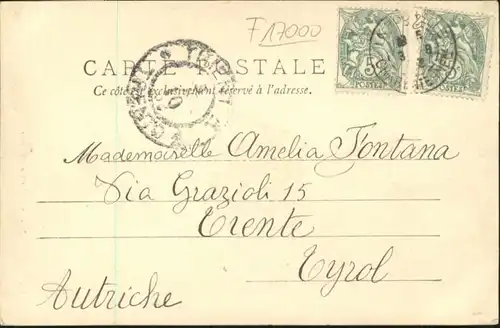 F 17000
CARTE POSTALE
Ce côté est exclusivement réservé à l'adresse.
Mademoiselle Amelia Fontana
Via Grazioli 15
Trente
Tyrol
Autriche